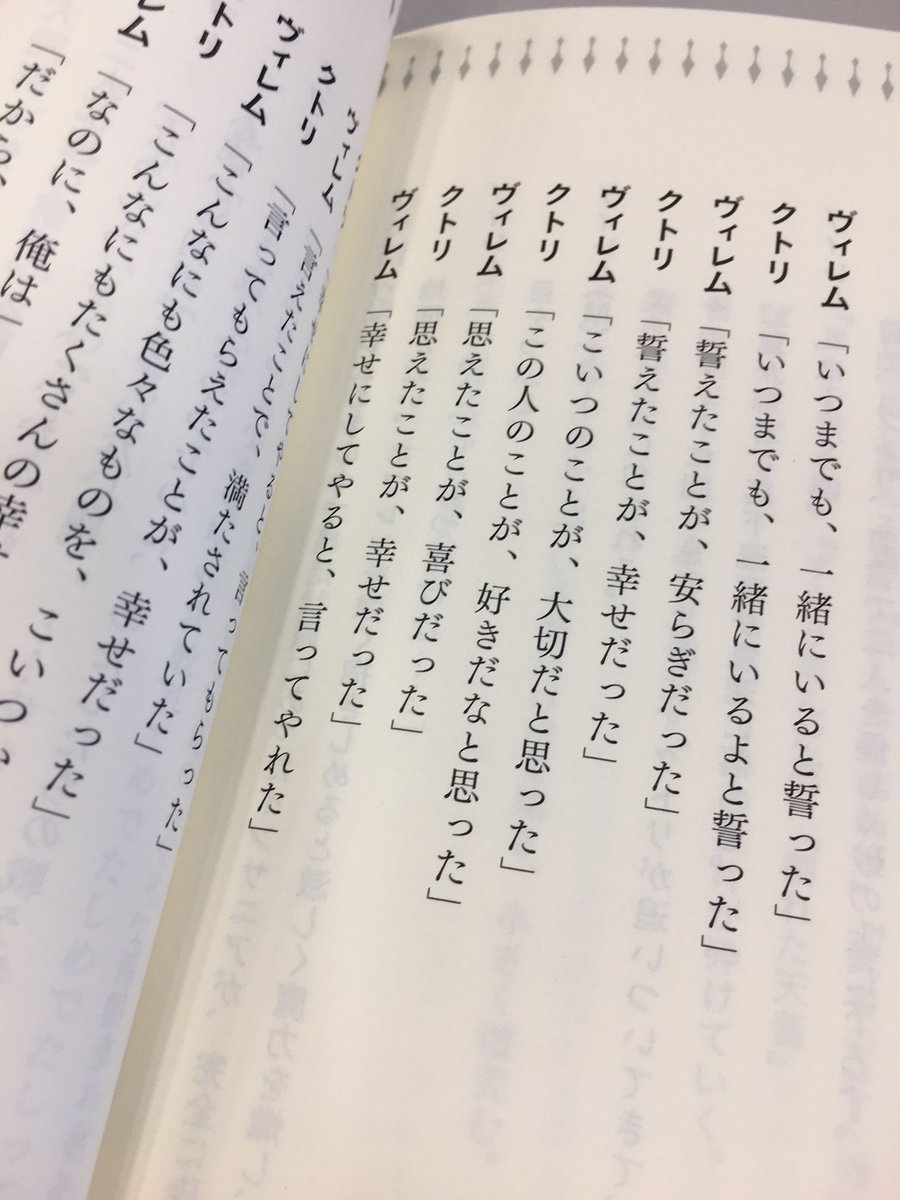 ヴィレム「いつまでも、一緒にいると誓った」
クトリ「いつまでも、一緒にいるよと誓った」
ヴィレム「誓えたことが、安らぎだった」
クトリ「誓えたことが、幸せだった」
ヴィレム「こいつのことが、大切だと思った」
クトリ「この人のことが、好きだなと思った」
ヴィレム「思えたことが、喜びだった」
クトリ「思えたことが、幸せだった」
ヴィレム「幸せにしてやると、言ってやれた」
言ってもらった」
ヴィレム「言えたことで、満たされていた」
クトリ「言ってもらえたことが、幸せだった」
ヴィレム「こんなにも色々なものを、こいつ
トリ「こんなにもたくさんの幸
レム「なのに、俺は
「だから、